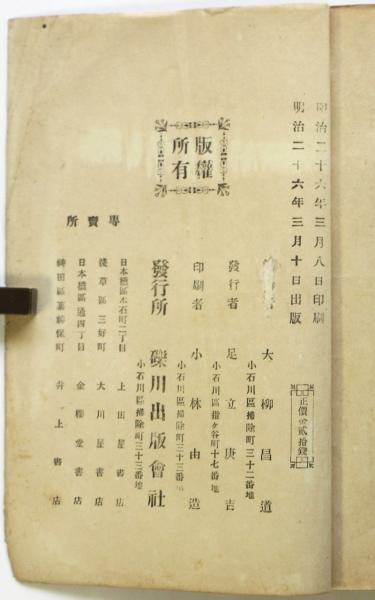 明治二十六年三月八日印刷
明治二十六年三月十日出版
正價金貳拾錢
版權
所有
大柳昌道
小石川區掃除町三十二番地
發行者 足立庚吉
小石川區指ヶ谷町十七番地
印刷者 小林由造
小石川區掃除町三十三番地
發行所 礫川出版會社
小石川區掃除町三十三番地
專賣所
日本橋區本石町二丁目 上田屋書店
淺草區三好町 大川屋書店
日本橋區通四丁目 金櫻堂書店
神田區裏神保町 井上書店